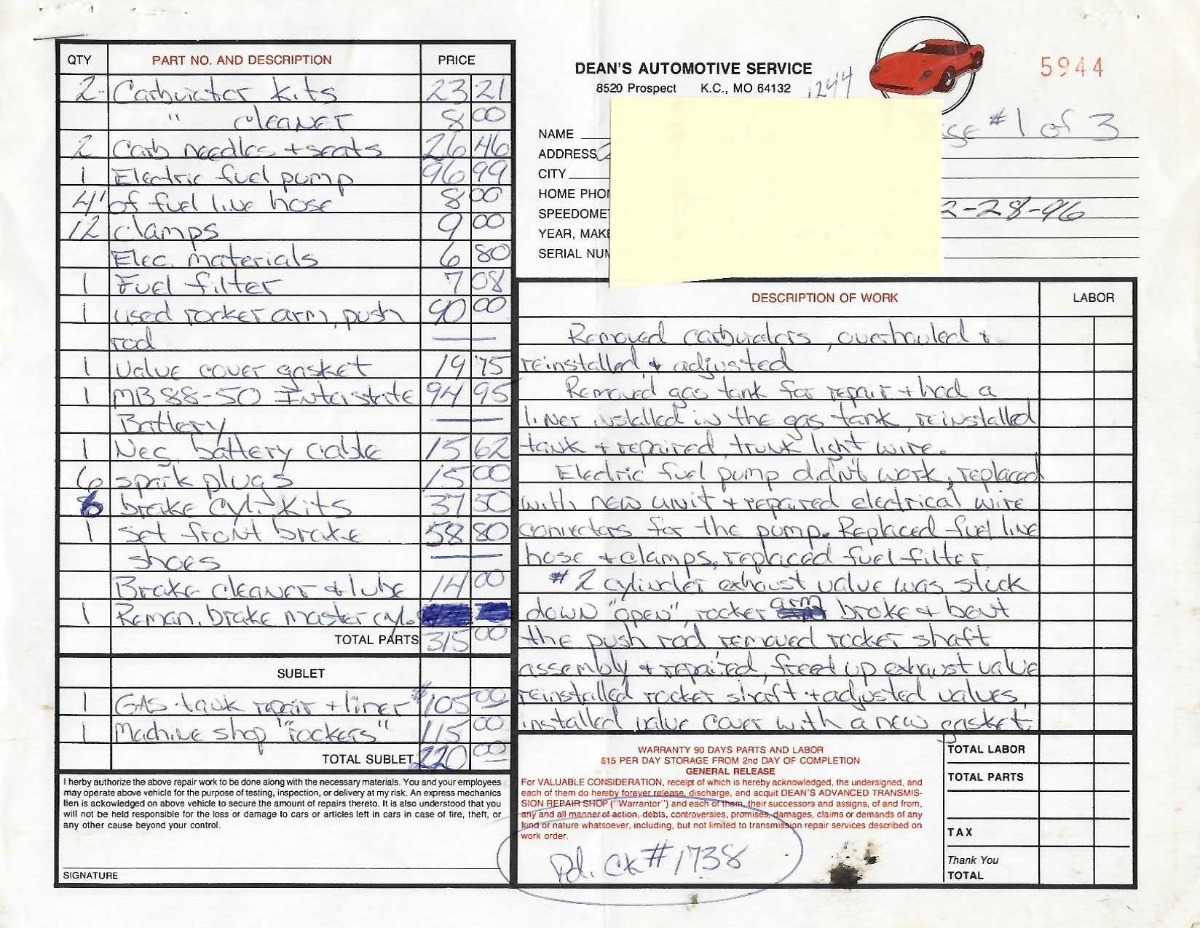 QTY PART NO. AND DESCRIPTION PRICE
2 Carburator kits 23 21
" cleaner 8 00
2 Carb needles + seats 26 46
1 Electric fuel pump 96 99
4' of fuel line hose 8 00
12 clamps 9 00
Elec. materials 6 80
1 Fuel filter 7 08
1 used rocker arm, push 90 00
rod
1 valve cover gasket 19 75
1 MB 88-50 Interstate 94 95
Battery
1 Neg. battery cable 15 62
6 spark plugs 15 00
6 brake cyl. kits 37 50
1 set front brake 58 80
shoes
Brake cleaner & lube 14 00
1 Reman. brake master cyl.
TOTAL PARTS 315 00
SUBLET
1 GAS tank repair + liner $105 00
1 Machine shop "rockers" 115 00
TOTAL SUBLET 220 00
I herby authorize the above repair work to be done along with the necessary materials. You and your employees
may operate above vehicle for the purpose of testing, inspection, or delivery at my risk. An express mechanics
lien is acknowledged on above vehicle to secure the amount of repairs thereto. It is also understood that you
will not be held responsible for the loss or damage to cars or articles left in cars in case of fire, theft, or
any other cause beyond your control.
SIGNATURE
DEAN'S AUTOMOTIVE SERVICE
8520 Prospect K.C., MO 64132
1244
5944
#1 of 3
NAME
ADDRESS
CITY
HOME PHO
SPEEDOMET
2-28-96
YEAR, MAK
SERIAL NUM
DESCRIPTION OF WORK LABOR
Removed carburators, overhauled &
reinstalled & adjusted
Removed gas tank for repair + had a
liner installed in the gas tank, reinstalled
tank + repaired trunk light wire.
Electric fuel pump didn't work, replaced
with new unit + repaired electrical wire
connectors for the pump. Replaced fuel line
hose + clamps, replaced fuel filter.
#2 cylinder exhaust valve was stuck
down "open", rocker arm broke & bent
the push rod, removed rocker shaft
assembly + repaired, freed up exhaust valve
reinstalled rocker shaft + adjusted valves,
installed valve cover with a new gasket.
WARRANTY 90 DAYS PARTS AND LABOR
$15 PER DAY STORAGE FROM 2nd DAY OF COMPLETION
GENERAL RELEASE
For VALUABLE CONSIDERATION, receipt of which is hereby acknowledged, the undersigned, and
each of them do hereby forever release, discharge, and acquit DEAN'S ADVANCED TRANSMIS-
SION REPAIR SHOP ("Warrantor") and each of them, their successors and assigns, of and from,
any and all manner of action, debts, controversies, promises, damages, claims or demands of any
kind or nature whatsoever, including, but not limited to transmission repair services described on
work order.
Pd. Ck #1738
TOTAL LABOR
TOTAL PARTS
TAX
Thank You
TOTAL